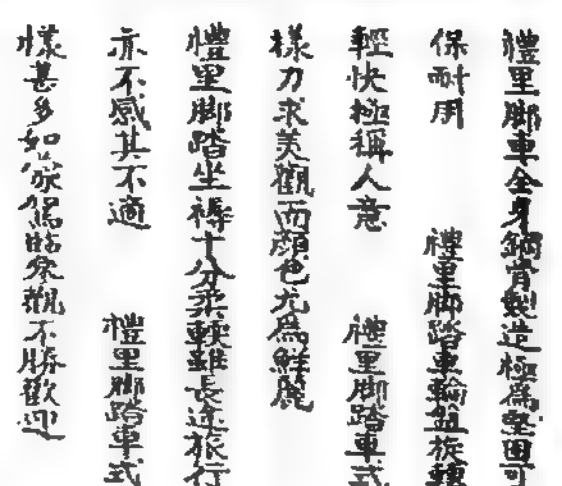 禮里脚車全身鋼骨製造極爲堅固可
保耐用　禮里脚踏車輪盤旋轉
輕快極稱人意　禮里脚踏車式
樣力求美觀而顔色尤爲鮮麗
禮里脚踏坐褥十分柔輭雖長途旅行
亦不感其不適　禮里脚踏車式
樣甚多如蒙駕臨參觀不勝歡迎